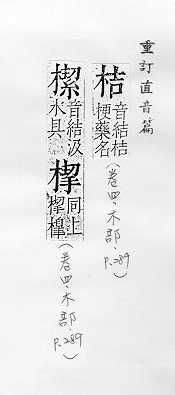 重訂直音篇
桔
音結桔
梗藥名
(卷四.木部.p.289)
㮮
音結汲
水具
同上
(卷四.木部.p.289)